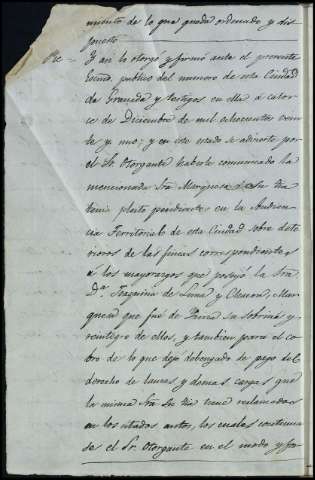 miento de lo que queda ordenado y dis
puesto
Y asi lo otorgó y firmó ante el presente
Escno. publico del numero de esta Ciudad
de Granada y testigos en ella á cator
ce de Diciembre de mil ochocientos vein
te y uno; y en este estado se advierte por
el Sr. Otorgante haberle comunicado la
mencionada Sra Marquesa su tia
tenia pleito pendiente en la Audien
cia Territorial de esta Ciudad sobre dete
rioros de las fincas correspondientes
á los mayorazgos que poseyó la Sra
Dª Joaquina de Luna y Mar
quesa que fué de su sobrina y
reintegro de ellos, y tambien para el co
bro de lo que dejó debengado de pago del
derecho de lanzas y demas cargas que
la misma Sra Su tia tiene reclamados
en los citados autos, los cuales continua
se el Sr. Otorgante en el modo y for